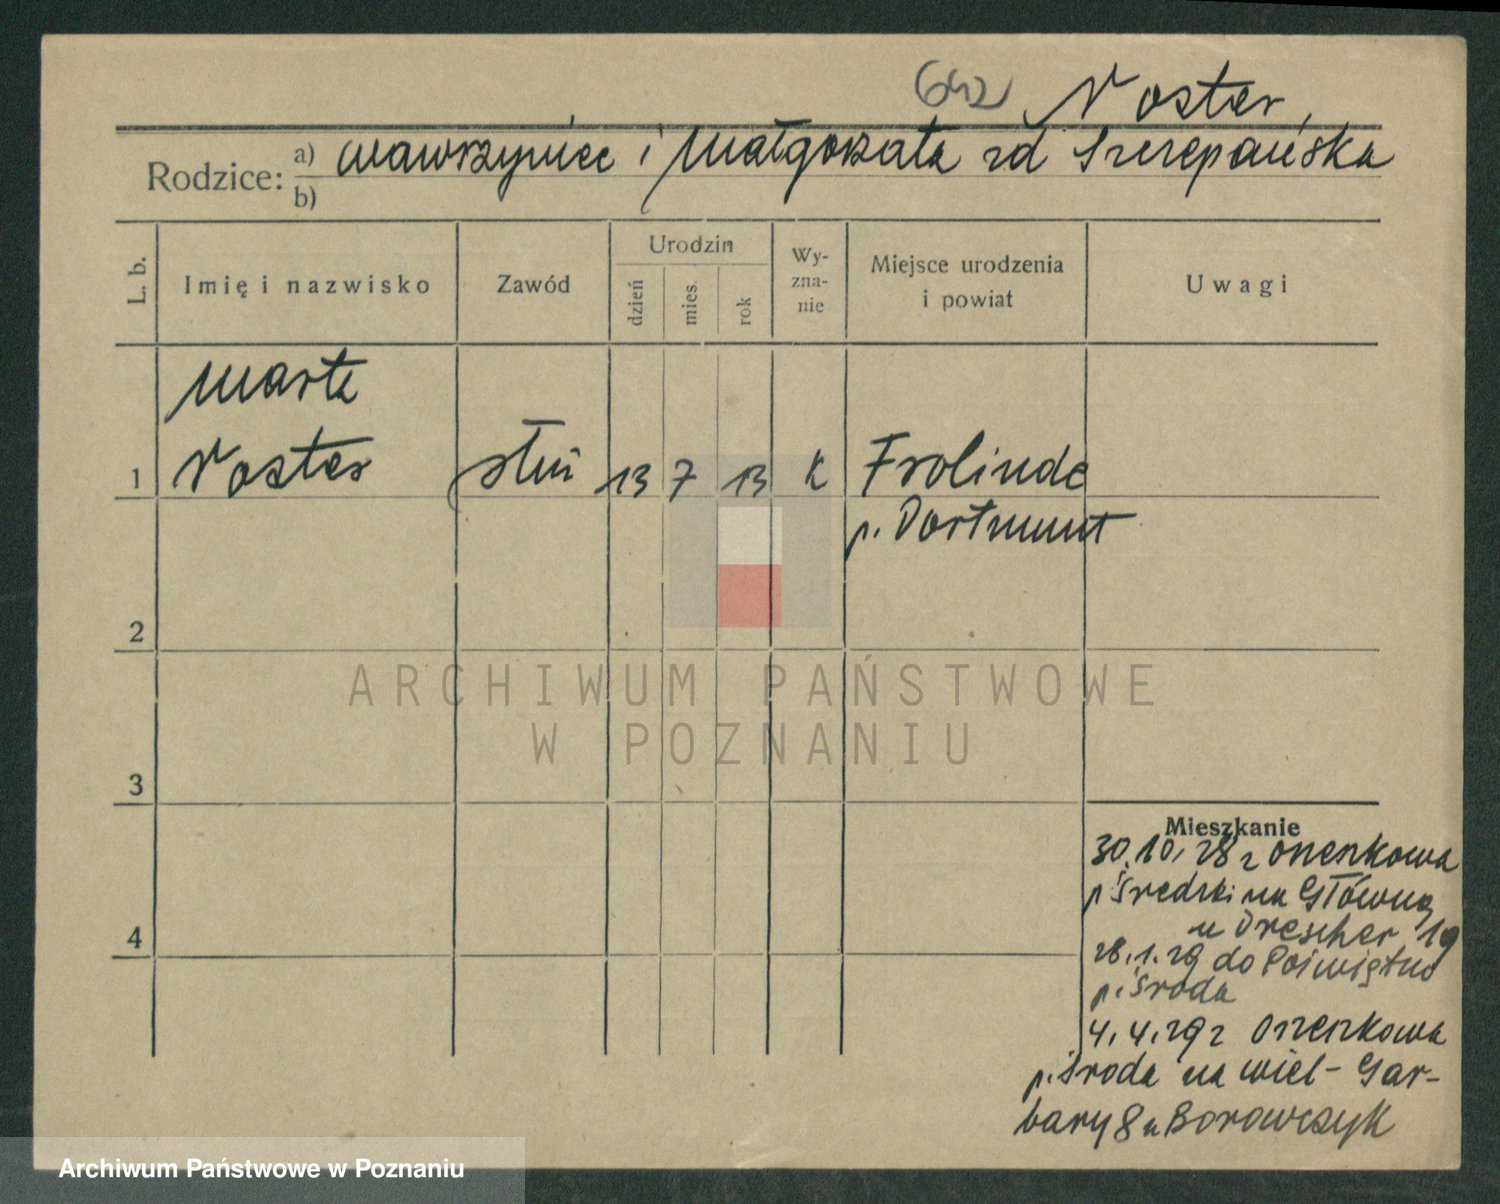 642 Noster,
Rodzice: a) Wawrzyniec i Małgorzata zd Szczepańska
b)
L. b. Imię i nazwisko Zawód Urodzin dzień mies. rok Wy-zna-nie Miejsce urodzenia i powiat Uwagi
Marta
1 Noster służ 13 7 13 k Frolinde
p. Dortmunt
2
ARCHIWUM PAŃSTWOWE
W POZNANIU
3
Mieszkanie
30.10.28 z
p. Średzki na Główną
u Drescher 19
28.1.29 do
p. Środa
4
4.4.29 z
p. Środa na Wiel-Gar-
bary 8 u Borowczyk
Archiwum Państwowe w Poznaniu